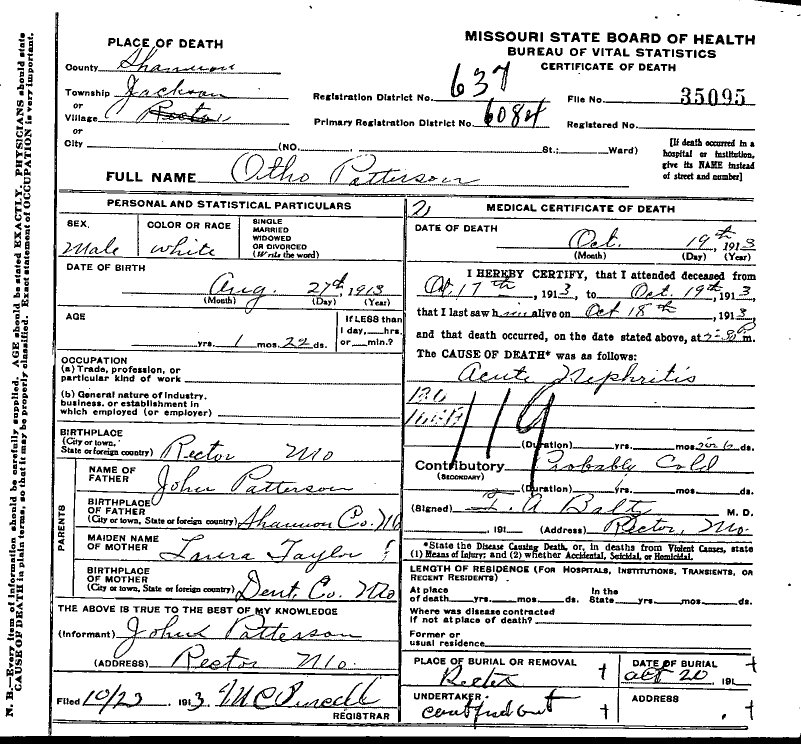 MISSOURI STATE BOARD OF HEALTH
BUREAU OF VITAL STATISTICS
CERTIFICATE OF DEATH
PLACE OF DEATH
County Shannon
Township Jackson
or
Village Rector
or
City (NO. St.; Ward)
Registration District No. 637 File No. 35095
Primary Registration District No. 6084 Registered No.
[If death occurred in a
hospital or institution,
give its NAME instead
of street and number]
FULL NAME Otho Patterson
PERSONAL AND STATISTICAL PARTICULARS
SEX. Male
COLOR OR RACE White
SINGLE
MARRIED
WIDOWED
OR DIVORCED
(Write the word)
DATE OF BIRTH
Aug. 27th, 1913
(Month) (Day) (Year)
AGE
yrs. 1 mos. 22 ds.
If LESS than
1 day, hrs.
or min.?
OCCUPATION
(a) Trade, profession, or
particular kind of work
(b) General nature of Industry,
business, or establishment in
which employed (or employer)
BIRTHPLACE
(City or town,
State or foreign country) Rector Mo
PARENTS
NAME OF
FATHER John Patterson
BIRTHPLACE
OF FATHER
(City or town, State or foreign country) Shannon Co. Mo
MAIDEN NAME
OF MOTHER Laura Taylor
BIRTHPLACE
OF MOTHER
(City or town, State or foreign country) Dent. Co. Mo
THE ABOVE IS TRUE TO THE BEST OF MY KNOWLEDGE
(Informant) John Patterson
(ADDRESS) Rector Mo.
Filed 10/23, 1913
REGISTRAR
2
MEDICAL CERTIFICATE OF DEATH
DATE OF DEATH
Oct. 19th, 1913
(Month) (Day) (Year)
I HEREBY CERTIFY, that I attended deceased from
Oct. 17th, 1913, to Oct. 19th, 1913,
that I last saw him alive on Oct 18th, 1913,
and that death occurred, on the date stated above, at m.
The CAUSE OF DEATH* was as follows:
Acute Nephritis
119
(Duration) yrs. mos. ds.
Contributory Probably Cold
(SECONDARY)
(Duration) yrs. mos. ds.
(Signed) M. D.
, 191 (Address) Rector, Mo.
*State the Disease Causing Death, or, in deaths from Violent Causes, state
(1) Means of Injury; and (2) whether Accidental, Suicidal, or Homicidal.
LENGTH OF RESIDENCE (FOR HOSPITALS, INSTITUTIONS, TRANSIENTS, OR
RECENT RESIDENTS)
At place
of death yrs. mos. ds.
In the
State yrs. mos. ds.
Where was disease contracted
if not at place of death?
Former or
usual residence
PLACE OF BURIAL OR REMOVAL
Rector
DATE OF BURIAL
Oct 20, 191
UNDERTAKER
ADDRESS
N. B.—Every item of information should be carefully supplied. AGE should be stated EXACTLY. PHYSICIANS should state
CAUSE OF DEATH in plain terms, so that it may be properly classified. Exact statement of OCCUPATION is very important.